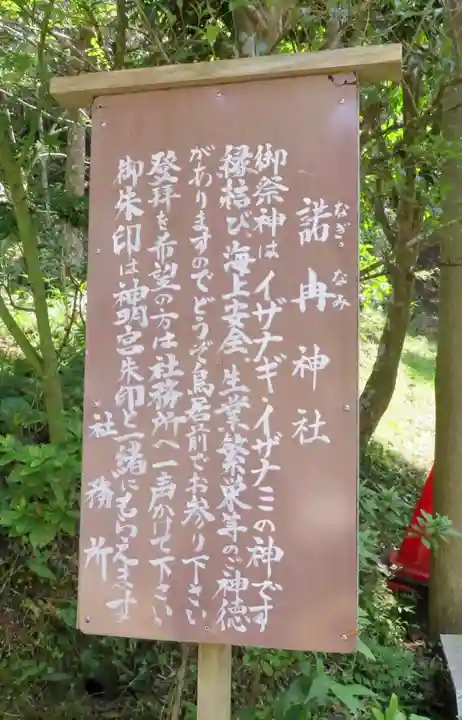 諾冉神社
なぎ、なみ
御祭神は イザナギ・イザナミの神です
縁結び 海上安全 生業繁栄等のご神徳
がありますのでどうぞ鳥居前でお参り下さい
登拝を希望の方は社務所へ一声かけて下さい
御朱印は神明宮朱印と一緒にもらえます
社務所